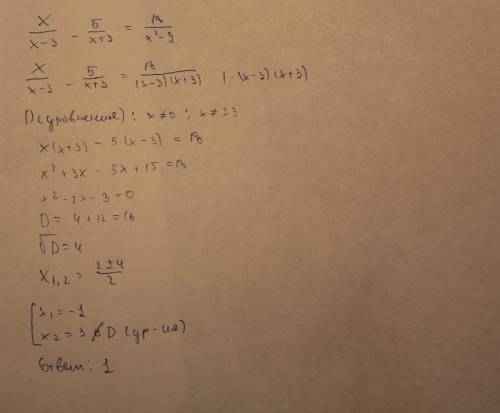 x/(x-3) - 5/(x+3) = 18/(x²-9)
x/(x-3) - 5/(x+3) = 18/((x-3)(x+3)) | ·(x-3)(x+3)
D(уравнения): x≠0; x≠±3
x(x+3) - 5(x-3) = 18
x² + 3x - 5x + 15 = 18
x² - 2x - 3 = 0
D = 4 + 12 = 16
√D = 4
x₁,₂ = (2±4)/2
[x₁ = -1
x₂ = 3 ∉ D (ур-ия)
Ответ: 1